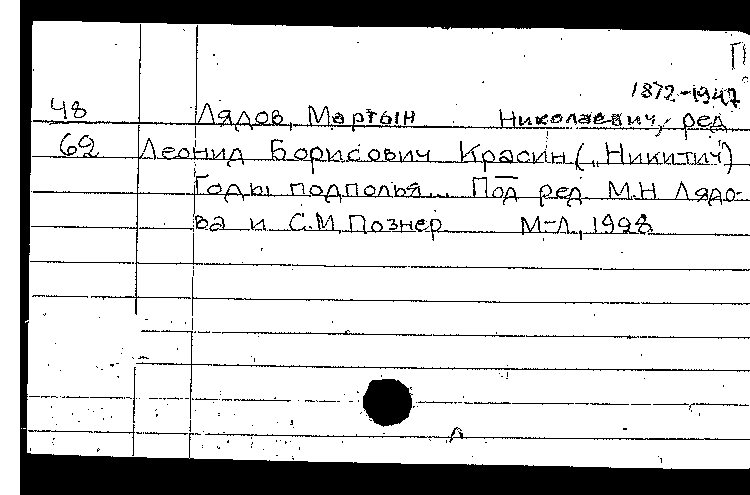 П
1872-1947
48 Лядов, Мартын Николаевич, ред
62 Леонид Борисович Красин („Никитич")
Годы подполья... Под ред. М.Н Лядо-
ва и С.М. Познер М-Л, 1928